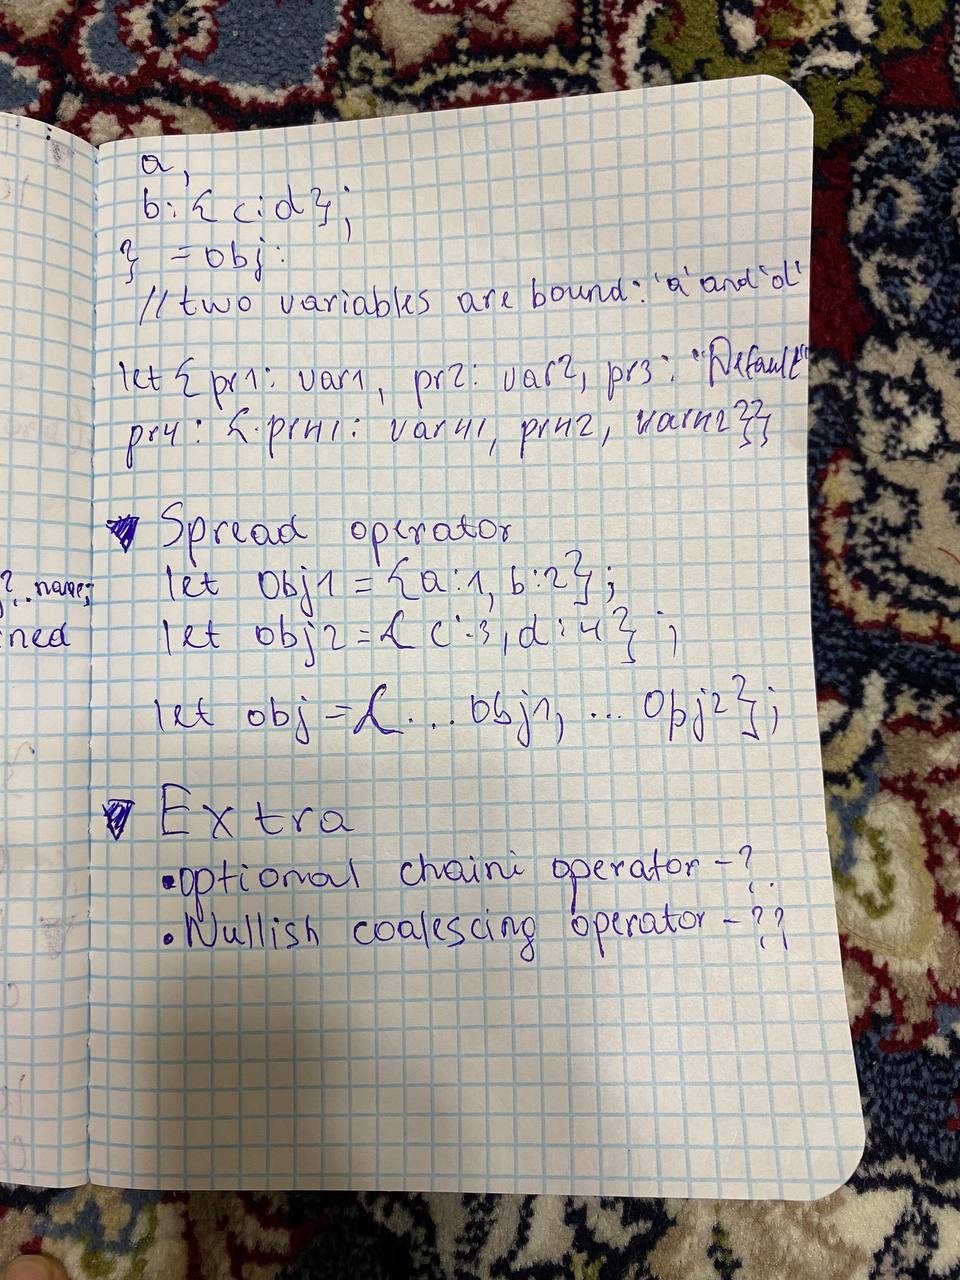 a,
b: { c: d };
} = obj:
// two variables are bound: 'a' and 'd'
let { pr1: var1, pr2: var2, pr3: "Default"
pr4: { pr41: var41, pr42, var42 }}
Spread operator
let obj1 = {a:1, b:2};
let obj2 = { c:3, d:4 };
let obj = { ...obj1, ...obj2 };
Extra
•optional chaini operator - ?.
•Nullish coalescing operator - ??
?.name;
ned